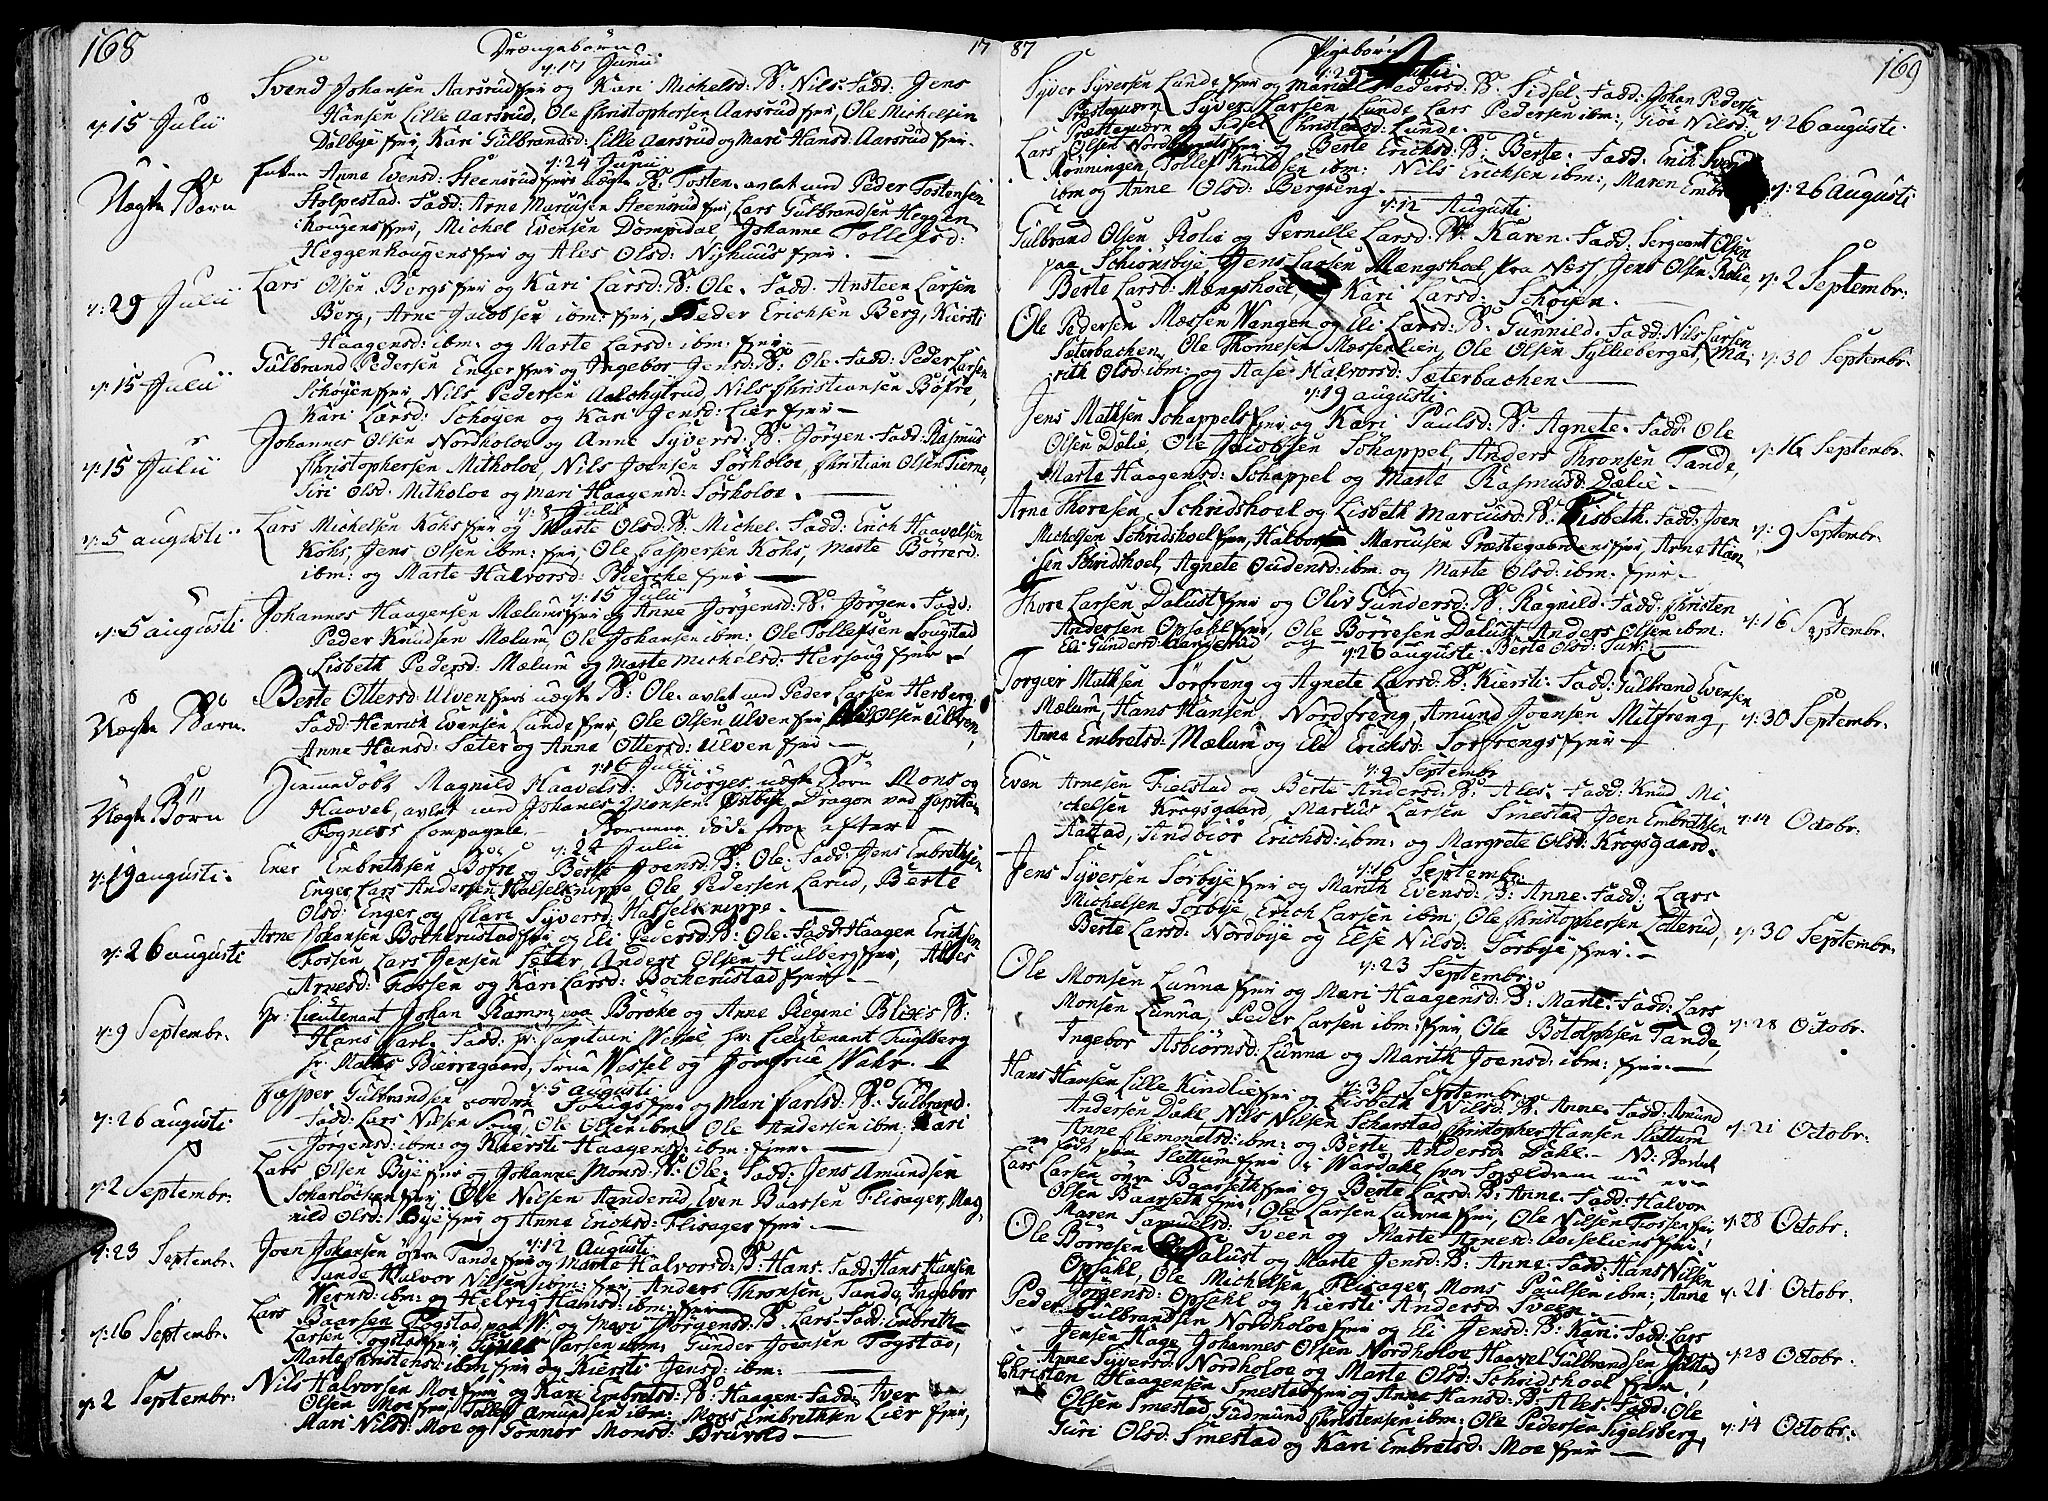 168
Drængebørn
17
d: 17 Junii
Svend Johansen Aarsrud fjer og Kari Michelsd: B: Nils. Fadd: Jens
Hansen Lille Aarsrud, Ole Christophersen Aarsrud fjer, Ole Michelsen
d: 15 Julii
Dalbye fjer, Kari Gulbrandsd: Lille Aarsrud og Mari Hansd: Aarsrud fjer.
d: 24 Junii
Anne Evensd: Steensrud fjers uægte B: Tosten. avlet med Peder Tostensen
Uægte Barn
Holpestad. Fadd: Arne Marcusen Steensrud fjer, Lars Gulbrandsen Heggen
hougens fjer, Michel Evensen Dompidal, Johanne Tollefsd:
Heggenhougens fjer og Ales Olsd: Nyhuus fjer.
d: 29 Julii
Lars Olsen Bergs fjer og Kari Larsd: B: Ole. Fadd: Ansteen Larsen
Berg, Arne Jacobsen ibm: fjer, Peder Erichsen Berg, Kiersti
Haagensd: ibm: og Marte Larsd: ibm: fjer.
d: 15 Julii
Gulbrand Pedersen Enger fjer og Ingebor Jensd: B: Ole. Fadd: Peder Larsen
Schøyen fjer, Nils Pedersen Aalchytrud, Nils Christiansen Bøfre,
Kari Larsd: Schøyen og Kari Jensd: Lier fjer
d: 15 Julii
Johannes Olsen Nordholoe og Anne Syversd: B: Jørgen. Fadd: Rasmus
Christophersen Mitholoe, Nils Joensen Sørholoe, Christian Olsen Tierne,
Siri Olsd: Mitholoe og Mari Haagensd: Sørholoe.
d: 8 Julii
d: 5 augusti
Lars Michelsen Kohs fjer og Marte Olsd: B: Michel. Fadd: Erich Haavelsen
Kohs, Jens Olsen ibm: fjer, Ole Caspersen Kohs, Marte Børresd:
ibm: og Marte Halvorsd: Biercke fjer
d: 15 Julii
d: 5 augusti
Johannes Haagensen Mælum fjer og Anne Jørgensd: B: Jørgen. Fadd:
Peder Knudsen Mælum, Ole Johansen ibm: Ole Tollefsen Sougstad
Lisbeth Pedersd: Mælum og Marte Michelsd: Hersoug fjer
Uægte Barn.
Berte Ottersd: Ulven fjers uægte B: Ole. avlet med Peder Larsen Herberg.
Fadd: Henrich Evensen Lunde fjer, Ole Olsen Ulven fjer, Olsen Ulven,
Anne Hansd: Sæter og Anne Ottersd: Ulven fjer
d: 16 Julii
Uægte Børn
Hiemmedøbt Magnild Haavelsd: Biørges uægte Børn Mons og
Haavel, avlet med Johannes Monsen Østbye Dragon ved Capitain
Fogners Compagnie. Børnene døde strax efter
d: 22 Julii
d: 19 augusti.
Ener Embrethsen Bøfre og Berte Joensd: B: Ole. Fadd: Jens Embrethsen
Enger, Lars Andersen Hasselknippe, Ole Pedersen Larud, Berte
Olsd: Enger og Mari Syversd: Hasselknippe.
d: 26 augusti
Arne Johansen Bockerustad fjer og Eli Pedersd: B: Ole. Fadd: Haagen Erichsen
Fossen Lars Jensen Sæter, Anders Olsen Hulberg fjer, Ales
Arnesd: Fossen og Kari Larsd: Bockerustad fjer
d: 9 Septembr.
Hr: Lieutenant Johan Ramm paa Børcke og Anne Regine Blix's B:
Hans Carl. Fadd: Hr: Capitain Wessel Hr: Lieutenant Fuglberg
Hr. Maths Bierregaard, Frue Wessel og Jomfrue Wahr.
d: 5 augusti
d: 26 augusti
Casper Gulbrandsen nordre Songs fjer og Mari Carlsd: B: Gulbrand.
Fadd: Lars Nilsen Song, Ole Olsen ibm: Ole Andersen ibm: Mari
Jørgensd: ibm: og Kiersti Haagensd: ibm: fjer.
d: 2 Septembr.
Lars Olsen Bye fjer og Johanne Monsd: B: Ole. Fadd: Jens Amundsen
Scharløchen fjer, Ole Nilsen Aanderud, Even Baarsen Flisager, Mag
nild Olsd: Bye fjer og Anne Erichsd: Flisager fjer
d: 12 Augusti
d: 23 Septembr.
Joen Johansen østre Tande fjer og Marte Halvorsd: B: Hans. Fadd: Hans Hansen
Tande Halvor Nilsen ibm: fjer, Anders Thronsen Tande, Ingebor
Vernsd: ibm: og Helvig Hansd: ibm: fjer
d: 16 Septembr.
Lars Baarsen Togstad og Mari Jørgensd: B: Lars. Fadd: Embreth
Larsen Togstad fjer, Syver Larsen ibm: Gunder Joensen Togstad,
Marte Christensd: ibm fjer og Kiersti Jensd: ibm:
d: 2 Septembr:
Nils Halvorsen Moe fjer og Kari Embretsd: B: Haagen. Fadd: Iver
Olsen Moe fjer, Tollef Amundsen ibm: Mons Embrethsen Lier fjer,
Mari Nilsd: Moe og Gonnor Monsd: Bruvold
87
Pigebørn
169
d: 29 Julii
Syver Syversen Lunde fjer og Marie Pedersd: B: Sidsel. Fadd: Johan Pedersen
Præstequern Syver Larsen Lunde Lars Pedersen ibm:, Gioe Nilsd:
d: 26 augusti.
Præstequern og Sidsel Christensd: Lunde.
Lars Olsen fjer og Berte Erichsd: B: Berte. Fadd: Erich
Rønningen, Tollef Knudsen ibm: Nils Erichsen ibm:, Maren Embr
d: 26 Augusti
ibm og Anne Olsd: Bergseng.
d: 12 Augusti
Gulbrand Olsen Rolie og Pernille Larsd: B: Karen. Fadd: Sergeant Olsen
paa Schionsbye, Jens Larsen Mængshoel fra Næss, Jens Olsen Rolie,
d: 2 Septembr:
Berte Larsd: Mængshoel, og Kari Larsd: Schøyen.
Ole Pedersen Mæssen Wangen og Eli Larsd: B: Gunnild. Fadd: Nils Larsen
Sæterbachen, Ole Thomesen Mæssenlien, Ole Olsen Syllieberget, Ma
d: 30 Septembr.
rith Olsd: ibm: og Aase Halvorsd: Sæterbachen.
d: 19 augusti
Jens Mathsen Schappels fjer og Kari Paulsd: B: Agnete. Fadd: Ole
Olsen Dælie, Ole Jacobsen Schappel, Anders Thronsen Tande,
d: 16 Septembr.
Marte Haagensd: Schappel og Marte Rasmusd: Dælie.
Arne Thoresen Schridshoel og Lisbeth Marcusd: B: Lisbeth. Fadd: Joen
Michelsen Schridshoel fjer, Halvor Marcusen Præstegaardens fjer, Arne Han
d: 9 Septembr.
sen Schridshoel, Agnete Oudensd: ibm: og Marte Olsd: ibm: fjer
Thore Larsen Dalust fjer og Oliv Gundersd: B: Ragnild. Fadd: Christen
Andersen Opsahl fjer, Ole Børresen Dalust, Anders Olsen ibm:
d: 16 Septembr.
Eli Gundersd: og Berte Olsd:
d: 26 augusti
Torgier Mathsen Sørfreng og Agnete Larsd: B: Kiersti. Fadd: Gulbrand Evensen
Mælum, Hans Hansen Nordfreng, Amund Joensen Mitfreng,
d: 30 Septembr.
Anne Embretsd: Mælum og Eli Erichsd: Sørfrengs fjer
d: 9 Septembr
Even Arnesen Fielstad og Berte Andersd: B: Ales. Fadd: Knud Mi
chelsen Krogsgaard, Marcus Larsen Smestad Joen Embrethsen
d: 14 Octobr:
Aastad, Indbiør Erichsd: ibm: og Margrete Olsd: Krogsgaard.
d: 16 Septembr:
Jens Syversen Sørbye fjer og Marith Evensd: B: Anne. Fadd: Lars
Michelsen Sørbye, Erich Larsen ibm, Ole Christophersen Lotterud,
d: 30 Septembr.
Berte Larsd: Nordbye og Else Nilsd: Sørbye fjer.
d: 23 Septembr:
Ole Monsen Lunna fjer og Mari Haagensd: B: Marte. Fadd: Lars
Monsen Lunna, Peder Larsen ibm: fjer, Ole Botolphsen Tande,
d: 28 Octobr.
Ingebor Asbiørnsd: Lunna og Marith Joensd: ibm: fjer.
d: 30 Septembr.
Hans Hansen Lille Kindlie fjer og Lisbeth Nilsd: B: Anne. Fadd: Amund
Andersen Dahl Nils Nilsen Scharstad, Christopher Hansen Slettum
d: 21 Octobr.
Anne Clemmetsd: ibm: og Berte Andersd: Dahl. NB: Barnet
er født paa Slettum fjer i Wardahl, hvor Forældrene nu ere
Lars Larsen øvre Baarseth fjer og Berte Larsd: B: Anne. Fadd: Halvor
Olsen Baarseth fjer, Ole Larsen Lunna fjer, Ole Nilsen Fossen fjer,
d: 28 Octobr.
Maren Samuelsd: Sveen og Marte Arnesd: fjer.
Ole Børresen Dalust og Marte Jensd: B: Anne. Fadd: Hans Nilsen
Opsahl, Ole Michelsen Flisager, Mons Paulsen ibm:, Anne
d: 21 Octobr.
Jørgensd: Opsahl og Kiersti Andersd: Sveen
Peder Gulbrandsen Nordholoe fjer og Eli Jensd: B: Kari. Fadd: Lars
Jensen Hage, Johannes Olsen Nordholoe, Haavel Gulbrandsen
d: 28 Octobr.
Anne Syversd: Nordholoe og Marte Olsd: Schridshoel fjer.
Christen Haagensen Smestad fjer og Anne Hansd: B: Ales. Fadd: Ole
Olsen Smestad Gudmund Christensen ibm: Ole Pedersen Sigelsberg,
d: 14 Octobr.
Guri Olsd: Smestad og Kari Embretsd: Moe fjer